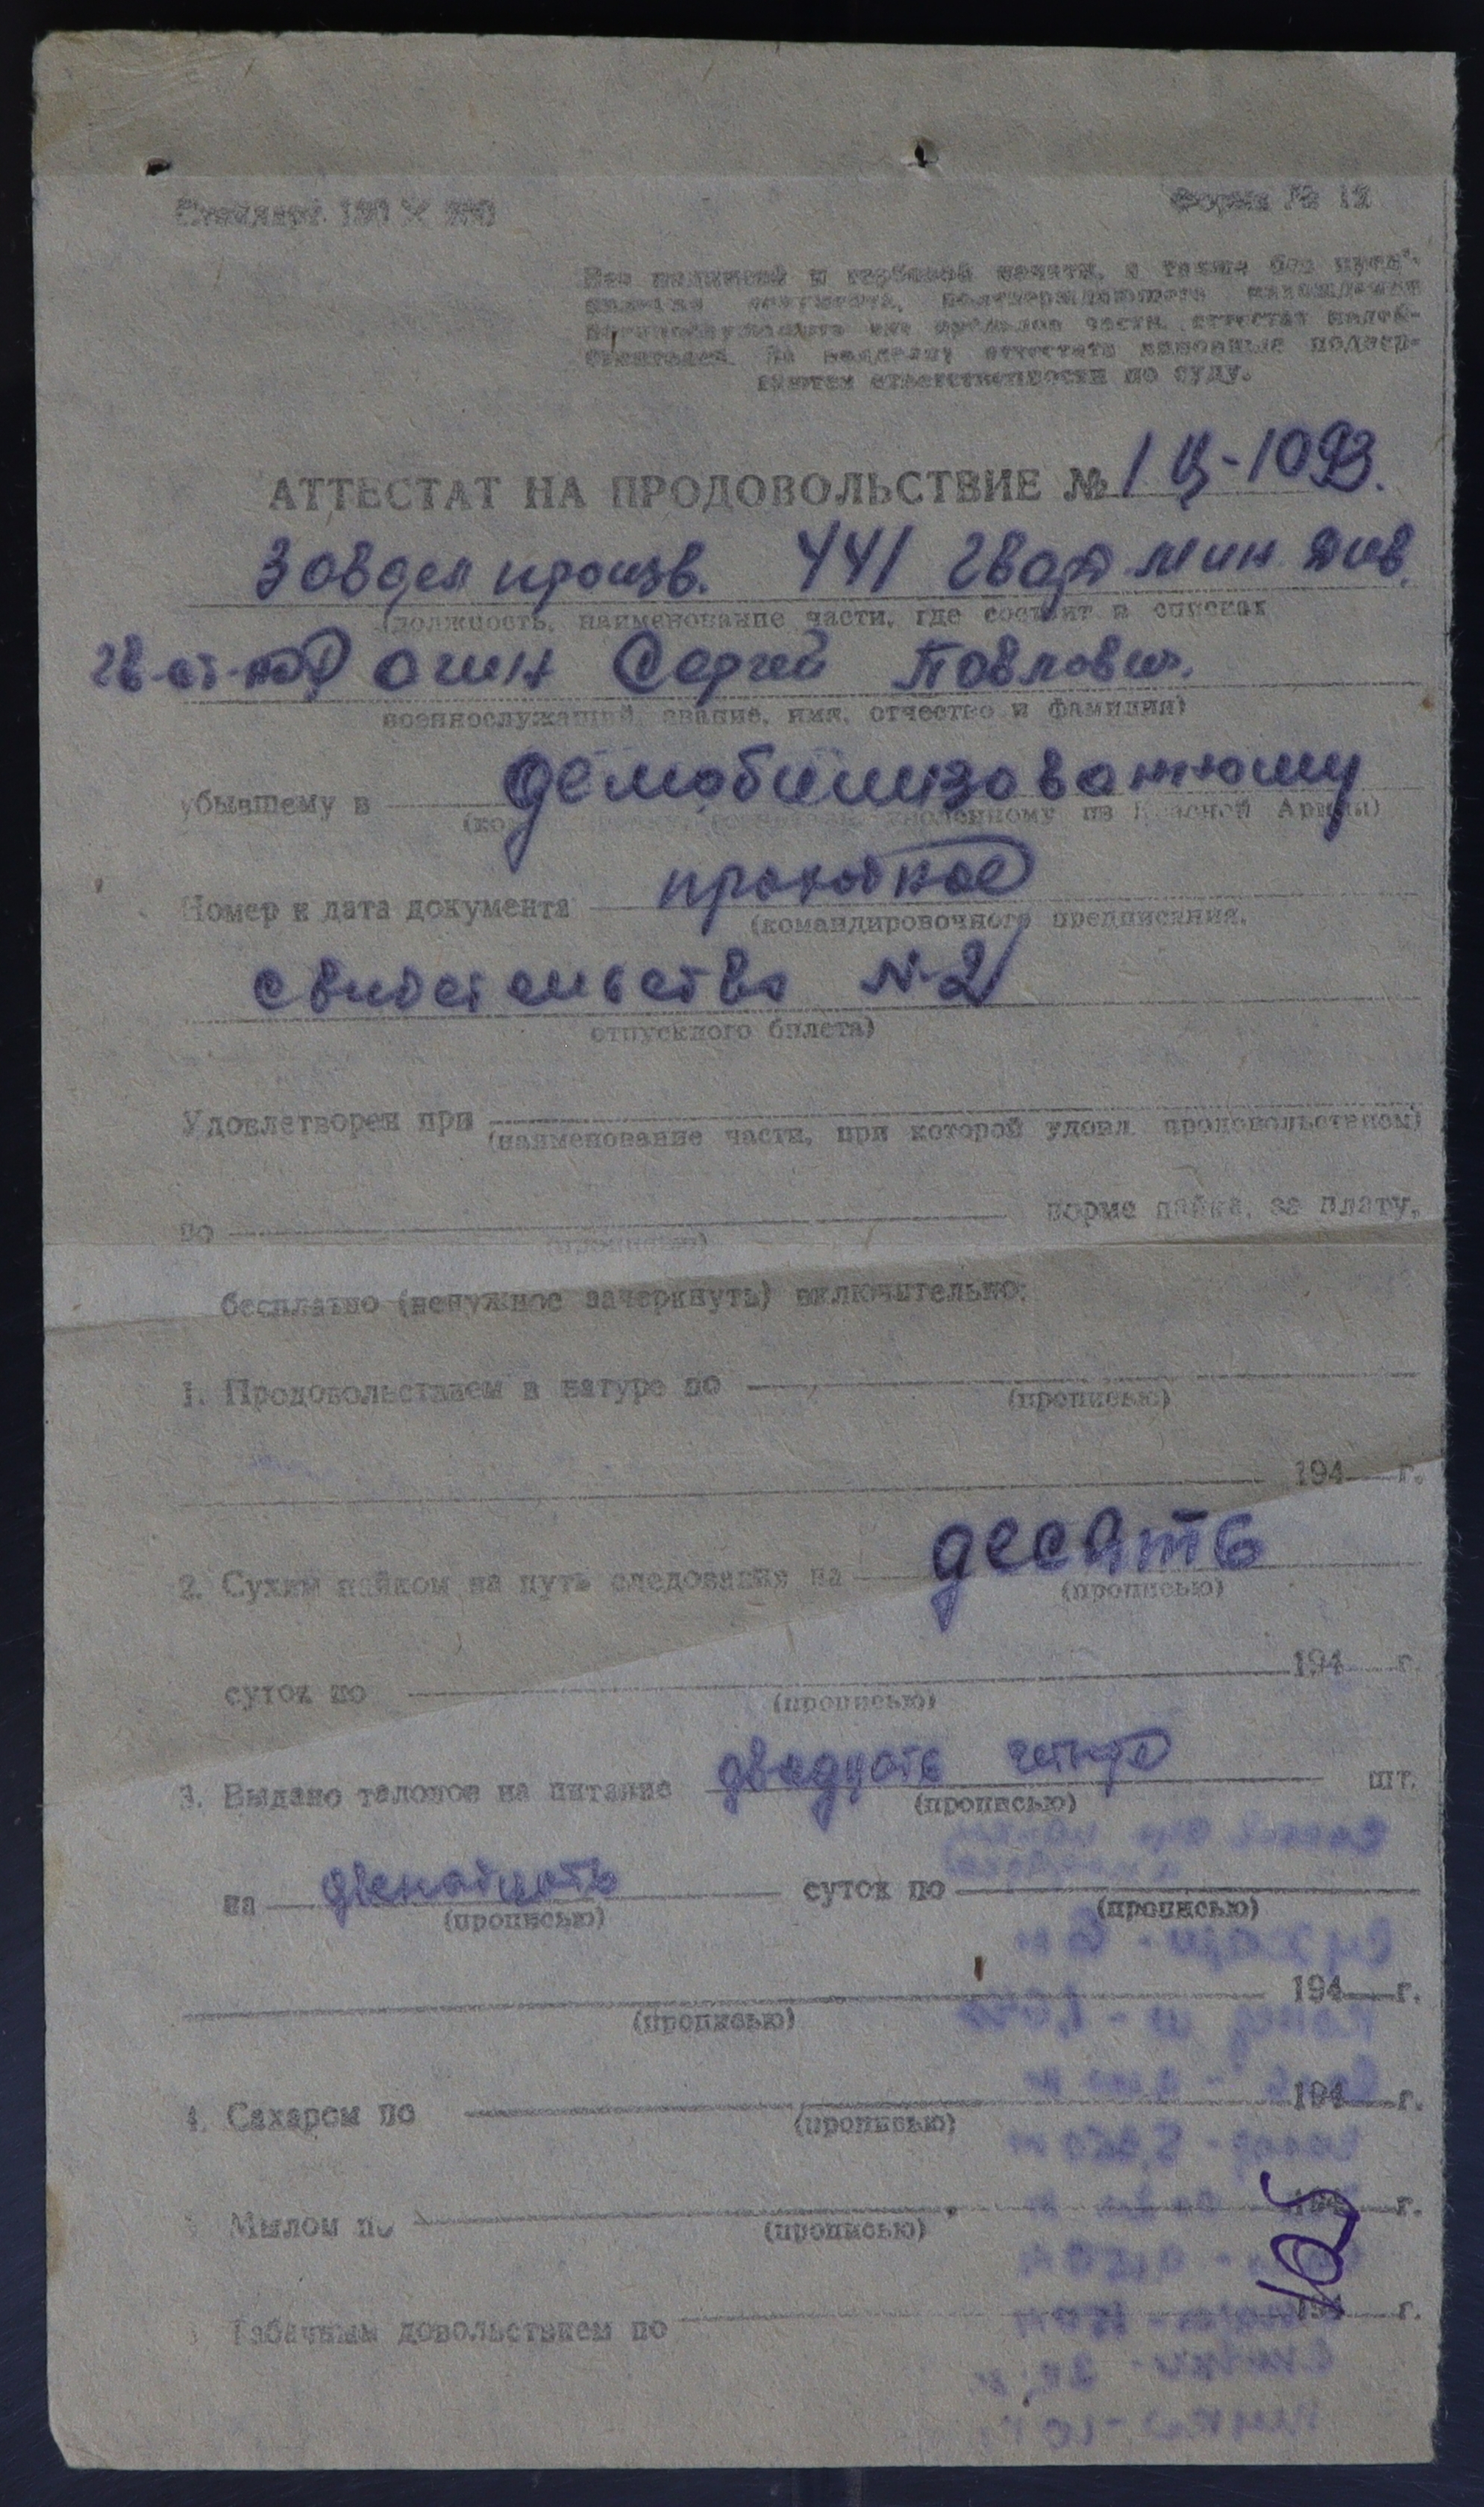 Стандарт 130 × 220
Форма № 12
Без подписей и гербовой печати, а также без
документа, подтверждающего нахождение
военнослужащего вне пределов части, аттестат
За подделку аттестата виновные подвер-
гаются ответственности по суду.
АТТЕСТАТ НА ПРОДОВОЛЬСТВИЕ № 1
Завдел произв. 441 гвар мин див.
(должность, наименование части, где состоит в списках
гв-ст- Сергей Павлович.
военнослужащий, звание, имя, отчество и фамилия)
убывшему в демобилизованному
уволенному из Красной Армии)
Номер и дата документа проходное
(командировочного предписания,
свидетельства №-2
отпускного билета)
Удовлетворен при
(наименование части, при которой удовл. продовольствием)
по норме пайка, за плату,
(прописью)
бесплатно (ненужное зачеркнуть) включительно:
1. Продовольствием в натуре по
(прописью)
194 г.
2. Сухим пайком на путь следования на десять
(прописью)
суток по 194 г.
(прописью)
3. Выдано талонов на питание двадцать четыре шт.
(прописью)
на двенадцать суток по
(прописью) (прописью)
194 г.
(прописью)
4. Сахаром по 194 г.
(прописью)
Мылом по г.
(прописью)
Табачным довольствием по 194 г.